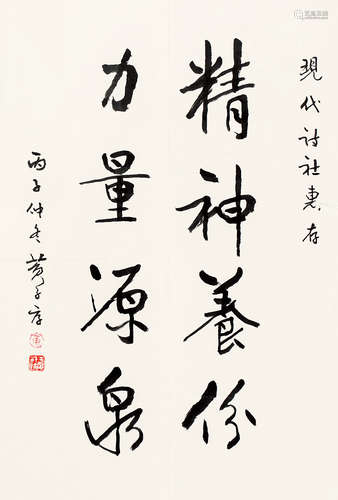 現代诗社惠存
精神養份
力量源泉
丙子仲冬黄子厚